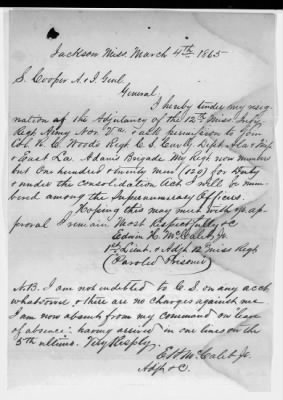 Jackson Miss. March 4th 1865
S. Cooper A & I Genl.
General
I hereby tender my resig-
nation of the Adjutancy of the 12th Miss. Infy
Regt Army Nor. Va. & ask permission to join
Col. R. C. Woods Regt C. S. Cavlry Dept Ala & Miss
& East La. Adams Brigade My Regt now numbers
but One hundred & twenty men (120) for Duty
& under the consolidation Act I will be num-
bered among the Supernumerary Officers.
Hoping this may meet with yr. ap-
proval I remain Most Respectfully &c
Edwin H. McCaleb Jr.
1st Lieut. & Adjt 12th Miss Regt
(Paroled Prisoner)
N.B. I am not indebted to C. S. on any acct
whatsoever & there are no charges against me
I am now absent from my command on "leave
of absence": having arrived in our lines on the
5th ultimo. Very Resply.
E H McCaleb Jr.
Adjt &c.